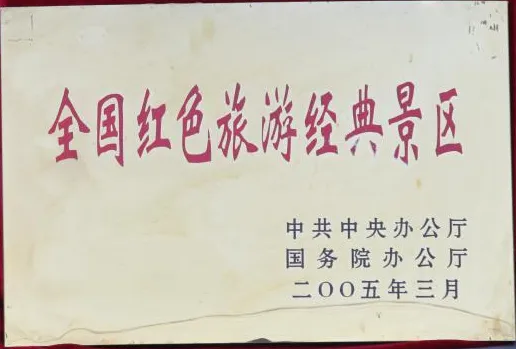 全国红色旅游经典景区
中共中央办公厅
国务院办公厅
二〇〇五年三月